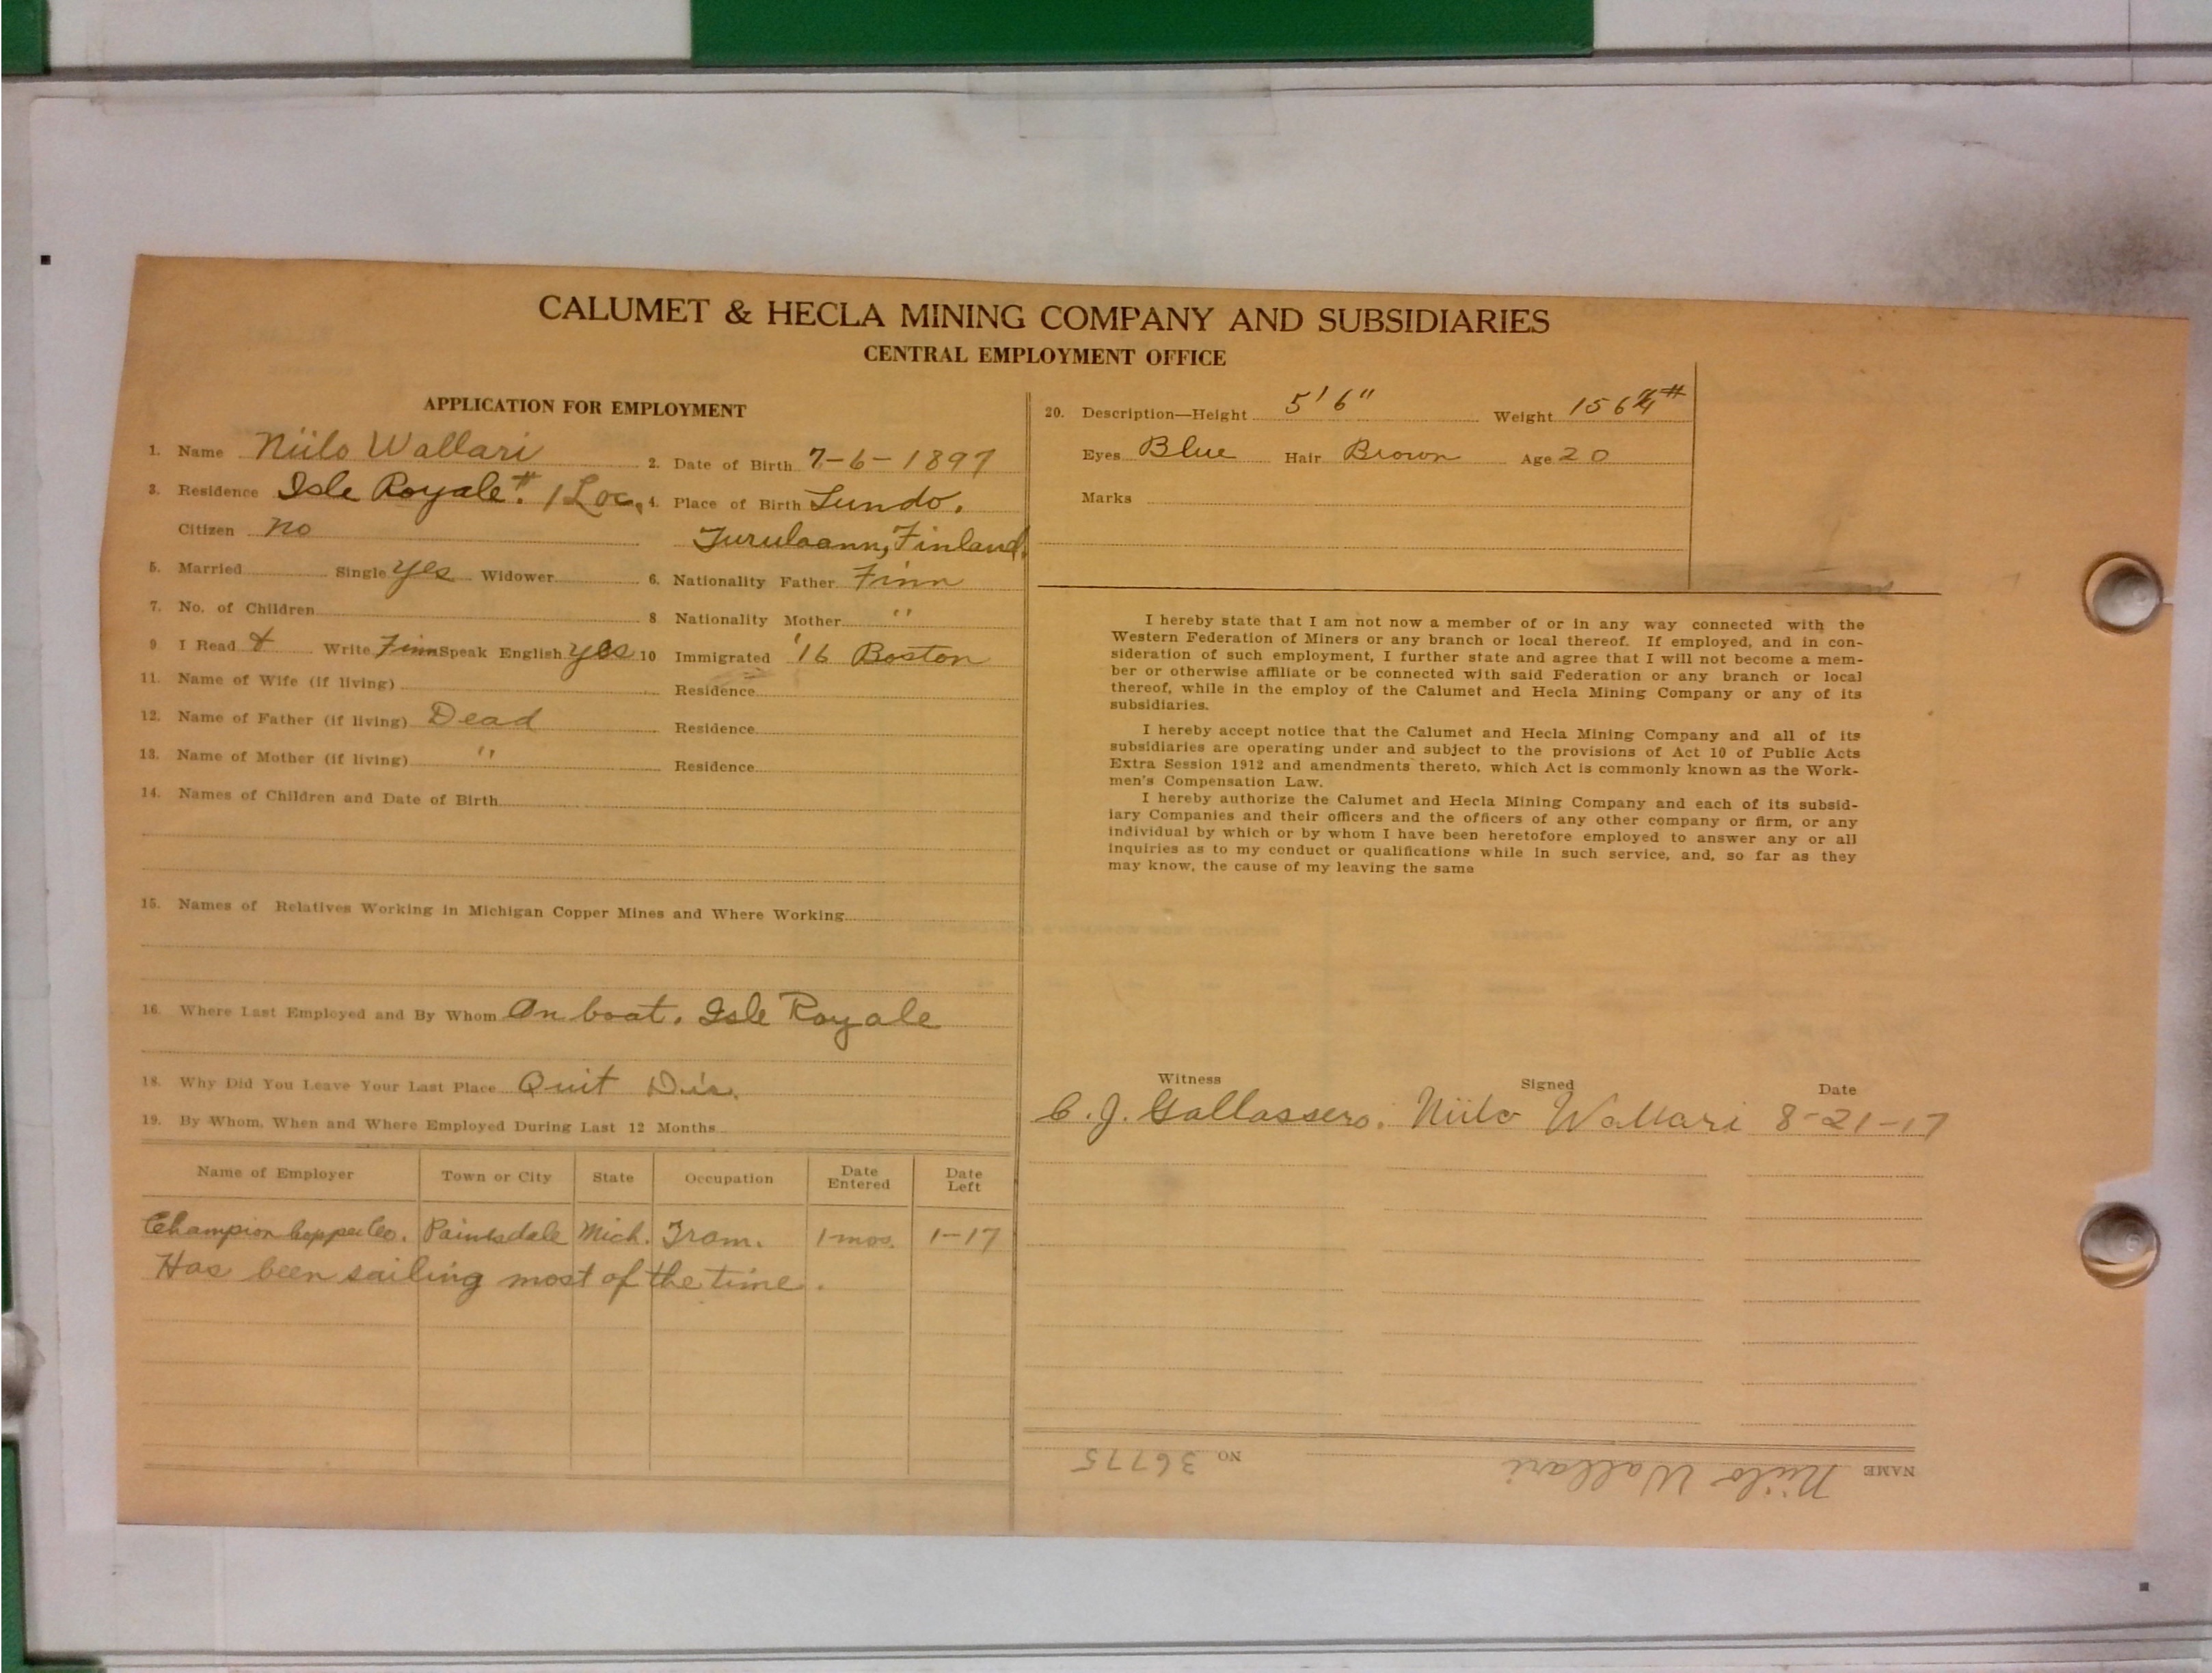 CALUMET & HECLA MINING COMPANY AND SUBSIDIARIES
CENTRAL EMPLOYMENT OFFICE
APPLICATION FOR EMPLOYMENT
1. Name Niilo Wallari 2. Date of Birth 7-6-1897
3. Residence Isle Royale. #1 Loc. 4. Place of Birth Lundo.
Citizen no Turulaann, Finland.
5. Married Single yes Widower 6. Nationality Father Finn
7. No. of Children 8 Nationality Mother "
9 I Read & Write Finn Speak English yes 10 Immigrated '16 Boston
11. Name of Wife (if living) Residence
12. Name of Father (if living) Dead Residence
13. Name of Mother (if living) " Residence
14. Names of Children and Date of Birth
15. Names of Relatives Working in Michigan Copper Mines and Where Working
16. Where Last Employed and By Whom On boat. Isle Royale
18. Why Did You Leave Your Last Place Quit Dis.
19. By Whom, When and Where Employed During Last 12 Months
Name of Employer Town or City State Occupation Date Entered Date Left
Champion Copper Co. Painesdale Mich. Tram. 1 mos. 1-17
Has been sailing most of the time.
20. Description—Height 5' 6" Weight 156 #
Eyes Blue Hair Brown Age 20
Marks
I hereby state that I am not now a member of or in any way connected with the
Western Federation of Miners or any branch or local thereof. If employed, and in con-
sideration of such employment, I further state and agree that I will not become a mem-
ber or otherwise affiliate or be connected with said Federation or any branch or local
thereof, while in the employ of the Calumet and Hecla Mining Company or any of its
subsidiaries.
I hereby accept notice that the Calumet and Hecla Mining Company and all of its
subsidiaries are operating under and subject to the provisions of Act 10 of Public Acts
Extra Session 1912 and amendments thereto, which Act is commonly known as the Work-
men's Compensation Law.
I hereby authorize the Calumet and Hecla Mining Company and each of its subsid-
iary Companies and their officers and the officers of any other company or firm, or any
individual by which or by whom I have been heretofore employed to answer any or all
inquiries as to my conduct or qualifications while in such service, and, so far as they
may know, the cause of my leaving the same
Witness Signed Date
C. J. Gallassero. Niilo Wallari 8-21-17
NAME Niilo Wallari NO 36775